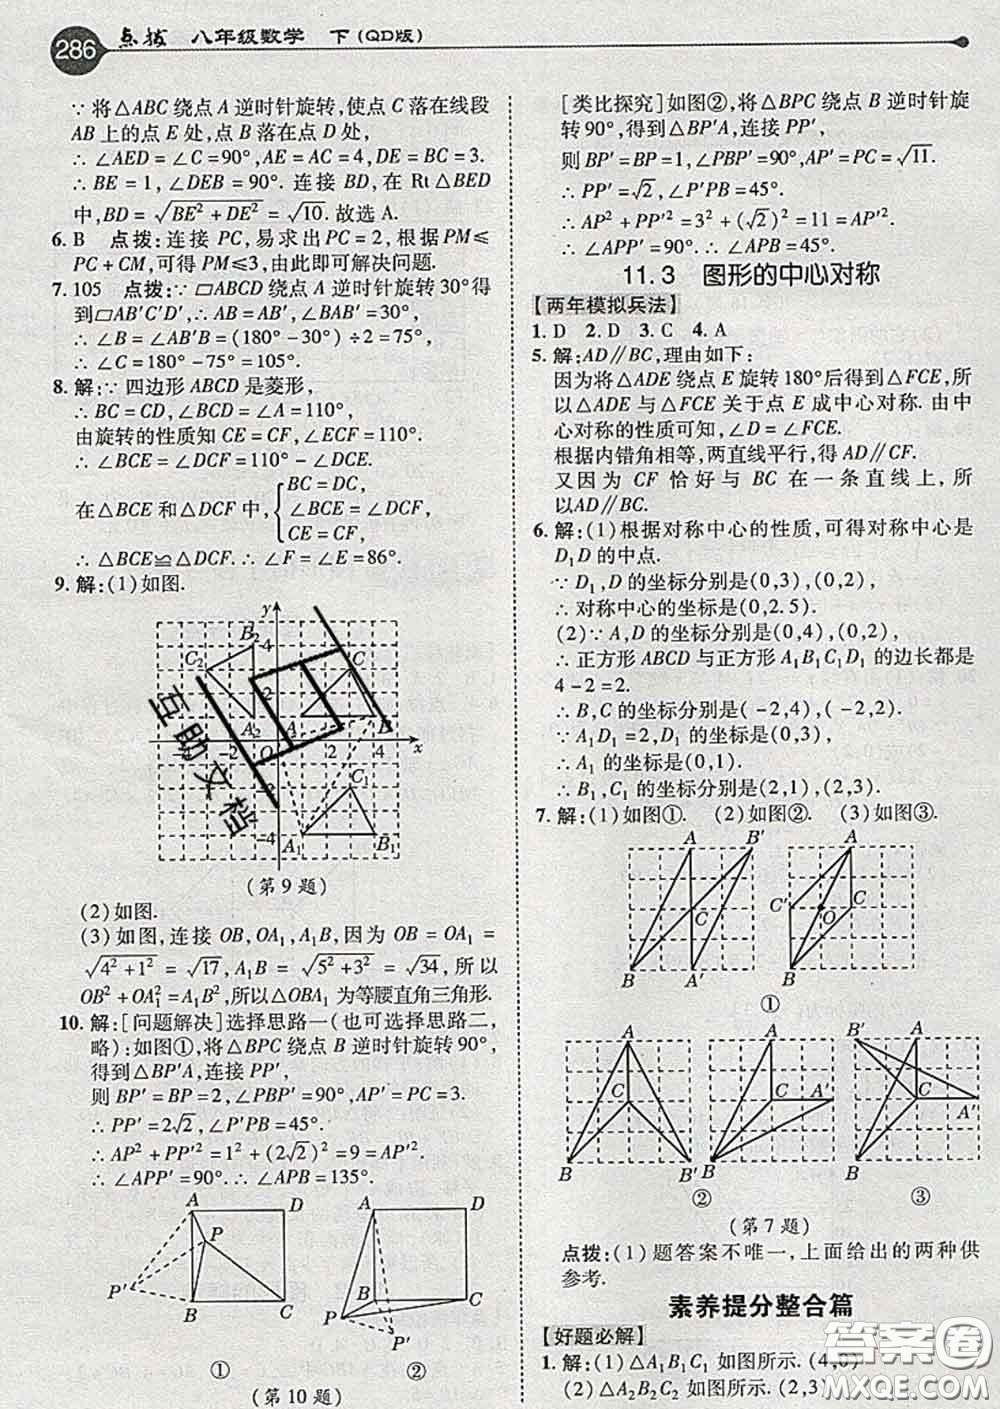 286 点拨 八年级数学 下(QD版)
∵将△ABC绕点A逆时针旋转,使点C落在线段
AB上的点E处,点B落在点D处,
∴∠AED=∠C=90°,AE=AC=4,DE=BC=3.
∴BE=1,∠DEB=90°. 连接BD,在Rt△BED
中,BD=√(BE²+DE²)=√10. 故选A.
6. B 点拨:连接PC,易求出PC=2,根据PM≤
PC+CM,可得PM≤3,由此即可解决问题.
7. 105 点拨:∵▱ABCD绕点A逆时针旋转30°得
到▱AB′C′D′,∴AB=AB′,∠BAB′=30°,
∴∠B=∠AB′B=(180°-30°)÷2=75°,
∴∠C=180°-75°=105°.
8. 解:∵四边形ABCD是菱形,
∴BC=CD,∠BCD=∠A=110°,
由旋转的性质知CE=CF,∠ECF=110°.
∴∠BCE=∠DCF=110°-∠DCE.
在△BCE和△DCF中,
BC=DC,
∠BCE=∠DCF,
CE=CF
∴△BCE≌△DCF. ∴∠F=∠E=86°.
9. 解:(1)如图.
y
B₂ 4
C₂ C
2
A₂ A B
-4 -2 O 2 4 x
-2
C₁
-4 A₁ B₁
互助文档
(第9题)
(2)如图.
(3)如图,连接OB,OA₁,A₁B,因为OB=OA₁=
√(4²+1²)=√17,A₁B=√(5²+3²)=√34,所以
OB²+OA₁²=A₁B²,所以△OBA₁为等腰直角三角形.
10. 解:[问题解决]选择思路一(也可选择思路二,
略):如图①,将△BPC绕点B逆时针旋转90°,
得到△BP′A,连接PP′,
则BP′=BP=2,∠P′BP=90°,AP′=PC=3.
∴PP′=2√2,∠P′PB=45°.
∴AP²+PP′²=1²+(2√2)²=9=AP′².
∴∠APP′=90°. ∴∠APB=135°.
A D A D
P
P′
B C B C
P P′
① ②
(第10题)
[类比探究]如图②,将△BPC绕点B逆时针旋
转90°,得到△BP′A,连接PP′,
则BP′=BP=1,∠PBP′=90°,AP′=PC=√11.
∴PP′=√2,∠P′PB=45°.
∴AP²+PP′²=3²+(√2)²=11=AP′².
∴∠APP′=90°. ∴∠APB=45°.
11.3 图形的中心对称
【两年模拟兵法】
1. D 2. D 3. C 4. A
5. 解:AD∥BC,理由如下:
因为将△ADE绕点E旋转180°后得到△FCE,所
以△ADE与△FCE关于点E成中心对称. 由中
心对称的性质可知,∠D=∠FCE.
根据内错角相等,两直线平行,得AD∥CF.
又因为CF恰好与BC在一条直线上,所
以AD∥BC.
6. 解:(1)根据对称中心的性质,可得对称中心是
D₁D的中点.
∵D₁,D的坐标分别是(0,3),(0,2),
∴对称中心的坐标是(0,2.5).
(2)∵A,D的坐标分别是(0,4),(0,2),
∴正方形ABCD与正方形A₁B₁C₁D₁的边长都是
4-2=2.
∴B,C的坐标分别是(-2,4),(-2,2).
∵A₁D₁=2,D₁的坐标是(0,3),
∴A₁的坐标是(0,1).
∴B₁,C₁的坐标分别是(2,1),(2,3).
7. 解:(1)如图①. (2)如图②. (3)如图③.
A B′ A
C C′ O C
B A′ B
①
A A B′ A
C C A′ C A′
B B′ B B′ B
② ③
(第7题)
点拨:(1)题答案不唯一,上面给出的两种供
参考.
素养提分整合篇
【好题必解】
1. 解:(1)△A₁B₁C₁如图所示. (4,0)
(2)△A₂B₂C₂如图所示. (2,3)
答案圈
MXQE.COM